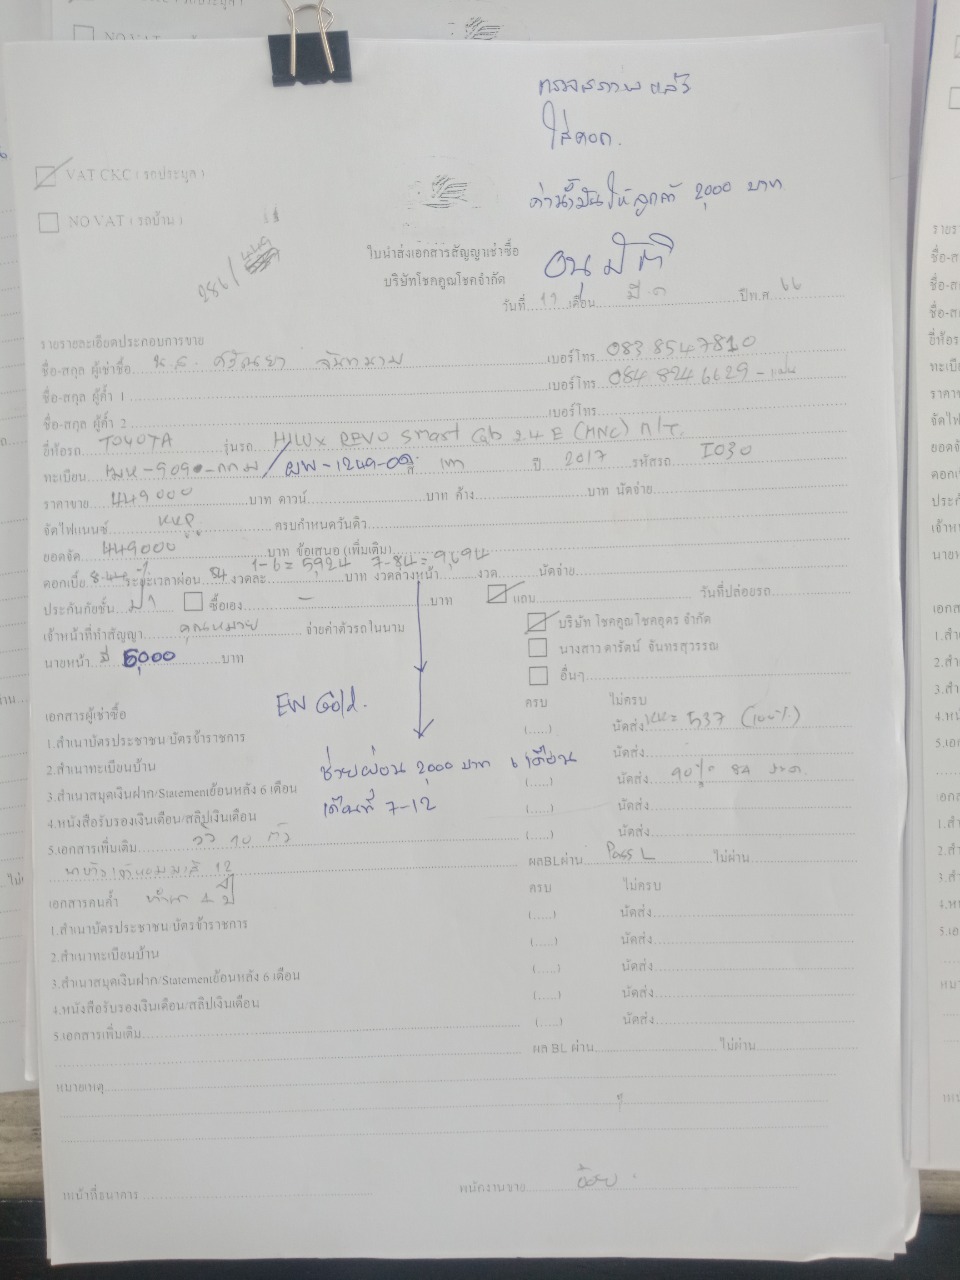 ตรวจสภาพ แล้ว
ใส่ดอก.
VAT CKC ( รถประมูล )
ค่าน้ำมันให้ลูกค้า 2,000 บาท
NO VAT ( รถบ้าน )
286/449
ใบนำส่งเอกสารสัญญาเช่าซื้อ
อนุมัติ
บริษัทโชคคูณโชคจำกัด
วันที่ 19 เดือน มี.ค ปีพ.ศ. 66
รายละเอียดประกอบการขาย
ชื่อ-สกุล ผู้เช่าซื้อ น.ส. เบอร์โทร 083 8547810
ชื่อ-สกุล ผู้ค้ำ 1 เบอร์โทร 084 8246629 - แฟน
ชื่อ-สกุล ผู้ค้ำ 2 เบอร์โทร
ยี่ห้อรถ TOYOTA รุ่นรถ HILUX REVO Smart Cab 2.4 E (MNC) M/T.
ทะเบียน -9090-กทม / ผพ-1249- สี เทา ปี 2017 รหัสรถ I030
ราคาขาย 449000 บาท ดาวน์ บาท ค้าง บาท นัดจ่าย
จัดไฟแนนซ์ KKP ครบกำหนดวันคิว
ยอดจัด 449000 บาท ข้อเสนอ (เพิ่มเติม)
1-6 = 5,924 7-84 = 9,694
ดอกเบี้ย 8.44 ระยะเวลาผ่อน 84 งวดละ บาท งวดล่วงหน้า งวด นัดจ่าย
ประกันภัยชั้น ป1 ซื้อเอง - บาท แถม วันที่ปล่อยรถ
เจ้าหน้าที่ทำสัญญา คุณหมวย จ่ายค่าตัวรถในนาม บริษัท โชคคูณโชคอุดร จำกัด
นางสาว ดารัตน์ จันทรสุวรรณ
นายหน้า มี 5,000 บาท
อื่นๆ
EW Gold.
เอกสารผู้เช่าซื้อ ครบ ไม่ครบ
1.สำเนาบัตรประชาชน/บัตรข้าราชการ (.....) นัดส่ง KK = 537 (100%)
2.สำเนาทะเบียนบ้าน นัดส่ง
ช่วยผ่อน 2,000 บาท 6 เดือน
3.สำเนาสมุดเงินฝาก/Statementย้อนหลัง 6 เดือน (.....) นัดส่ง 90% 84 งวด
เดือนที่ 7-12
4.หนังสือรับรองเงินเดือน/สลิปเงินเดือน (.....) นัดส่ง
5.เอกสารเพิ่มเติม วัว 10 ตัว (.....) นัดส่ง
12 ผลBLผ่าน Pass L ไม่ผ่าน
เอกสารคนค้ำ ปี ครบ ไม่ครบ
1.สำเนาบัตรประชาชน/บัตรข้าราชการ (.....) นัดส่ง
2.สำเนาทะเบียนบ้าน (.....) นัดส่ง
3.สำเนาสมุดเงินฝาก/Statementย้อนหลัง 6 เดือน (.....) นัดส่ง
4.หนังสือรับรองเงินเดือน/สลิปเงินเดือน (.....) นัดส่ง
5.เอกสารเพิ่มเติม (.....) นัดส่ง
ผล BL ผ่าน ไม่ผ่าน
หมายเหตุ
เจ้าหน้าที่ธนาคาร พนักงานขาย อ้อย